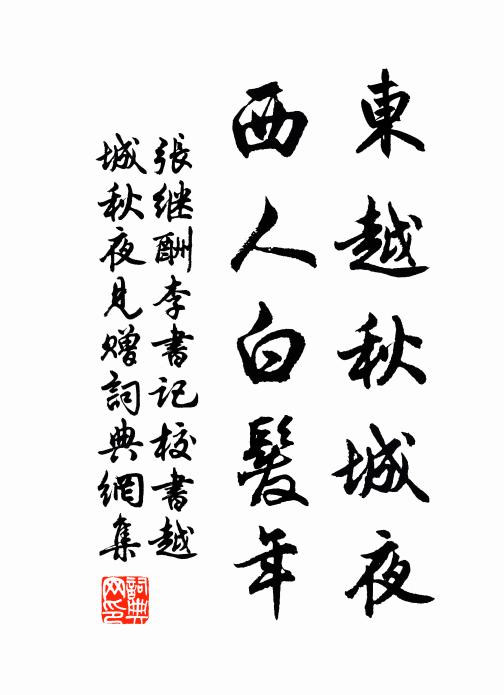 東越秋城夜
西人白髮年
張继酬李書記校書越
城秋夜見贈詞典網集
詞典
网印